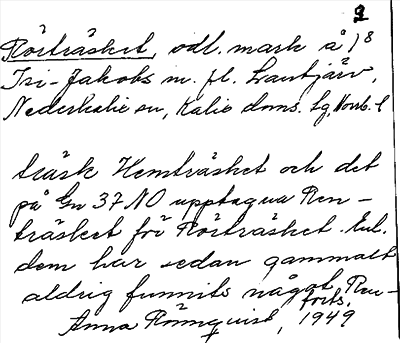 2
Rörträsket, odl. mark å 18
Isi-Jakobs m. fl. Lantjärv,
Nederkalix sn, Kalix doms. tg, Norrb. l
träsk Hemträsket och det
på Gn 37 NO upptagna Ren-
träsket för Rörträsket. Enl.
dem har sedan gammalt
aldrig funnits något Ren-
forts.
Anna Rönnquist, 1949